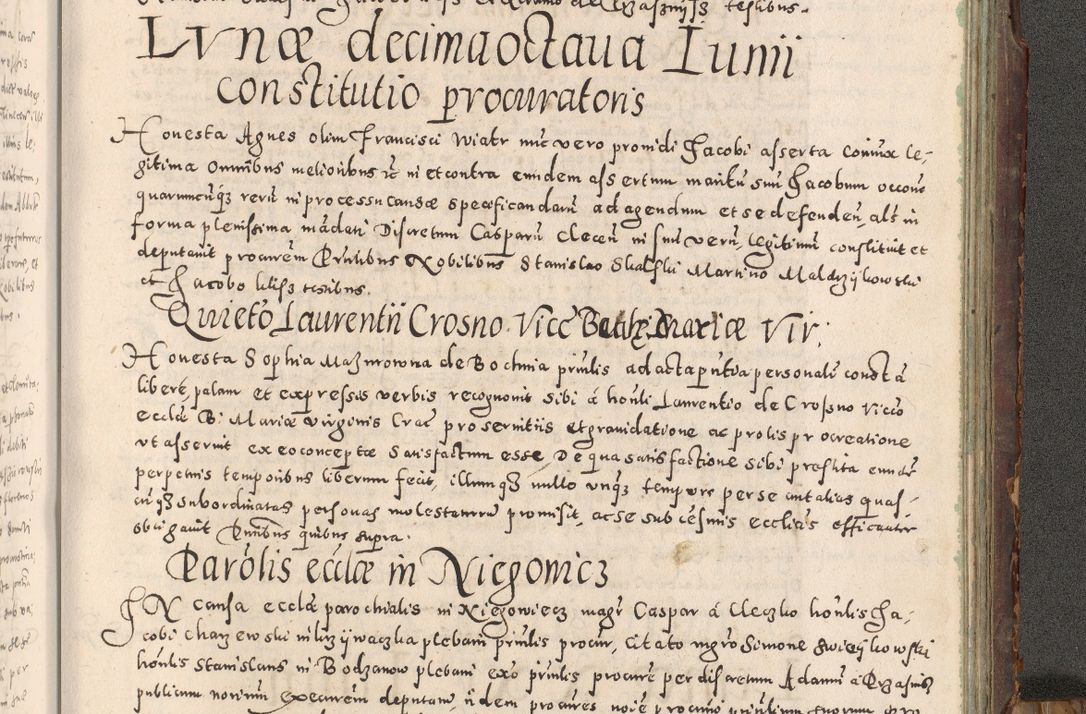 Lunæ decimaoctaua Iunii
constitutio procuratoris
Honesta Agnes olim Francisci Wiatr nunc vero prouidi Jacobi asserta coniux le-
gitima omnibus melioribus etc ni et contra eundem assertum maritum suum Jacobum occone
quarumcunqz reru in processu causæ specificandaru ad agendum et se defenden, als in
forma plenissima mandati Discretum Casparu Clecen in suu veru, legitimu constituit et
deputauit procurem Pntibus Nobilibus Stanislao Skalski Martino Maldzijkowski
et Jacobo testibus.
Quieto Laurentii Crosno Vice Mariæ Vir:
Honesta Sophia Mazurowna de Bochnia prinlis ad acta pntia personalr constta
libere, palam et expressis verbis recognouit sibi á honli Laurentio de Crosno vicco
eccliæ B: Mariæ virginis Crac pro seruitiis et grauidatione ac prolis procreatione
vt asseruit ex eo conceptæ satisfactum esse, De qua satisfactione sibi præstita eundem
perpetuis temporibus liberum fecit, illumqz nullo vnqz tempore per se aut alias quas-
cuqz subordinatas personas molestaturu promisit, ac se sub cesuris ecclias efficaciter
obligauit Pntibus quibus supra.
Parolis eccliæ in Niegouicz
IN causa eccliæ parochialis in Niegowiecz magr Caspar á Cleczko honlis Ja-
cobi Charzewski in lizijwaczka plebani prinlis procur, Citato mgro Simone Swiecijkowski
honlis Stanislaus in Bodzanow plebani exo prinlis procure per discretum Adamu á
publicum notariu execurem deputatu, ndem procures noie